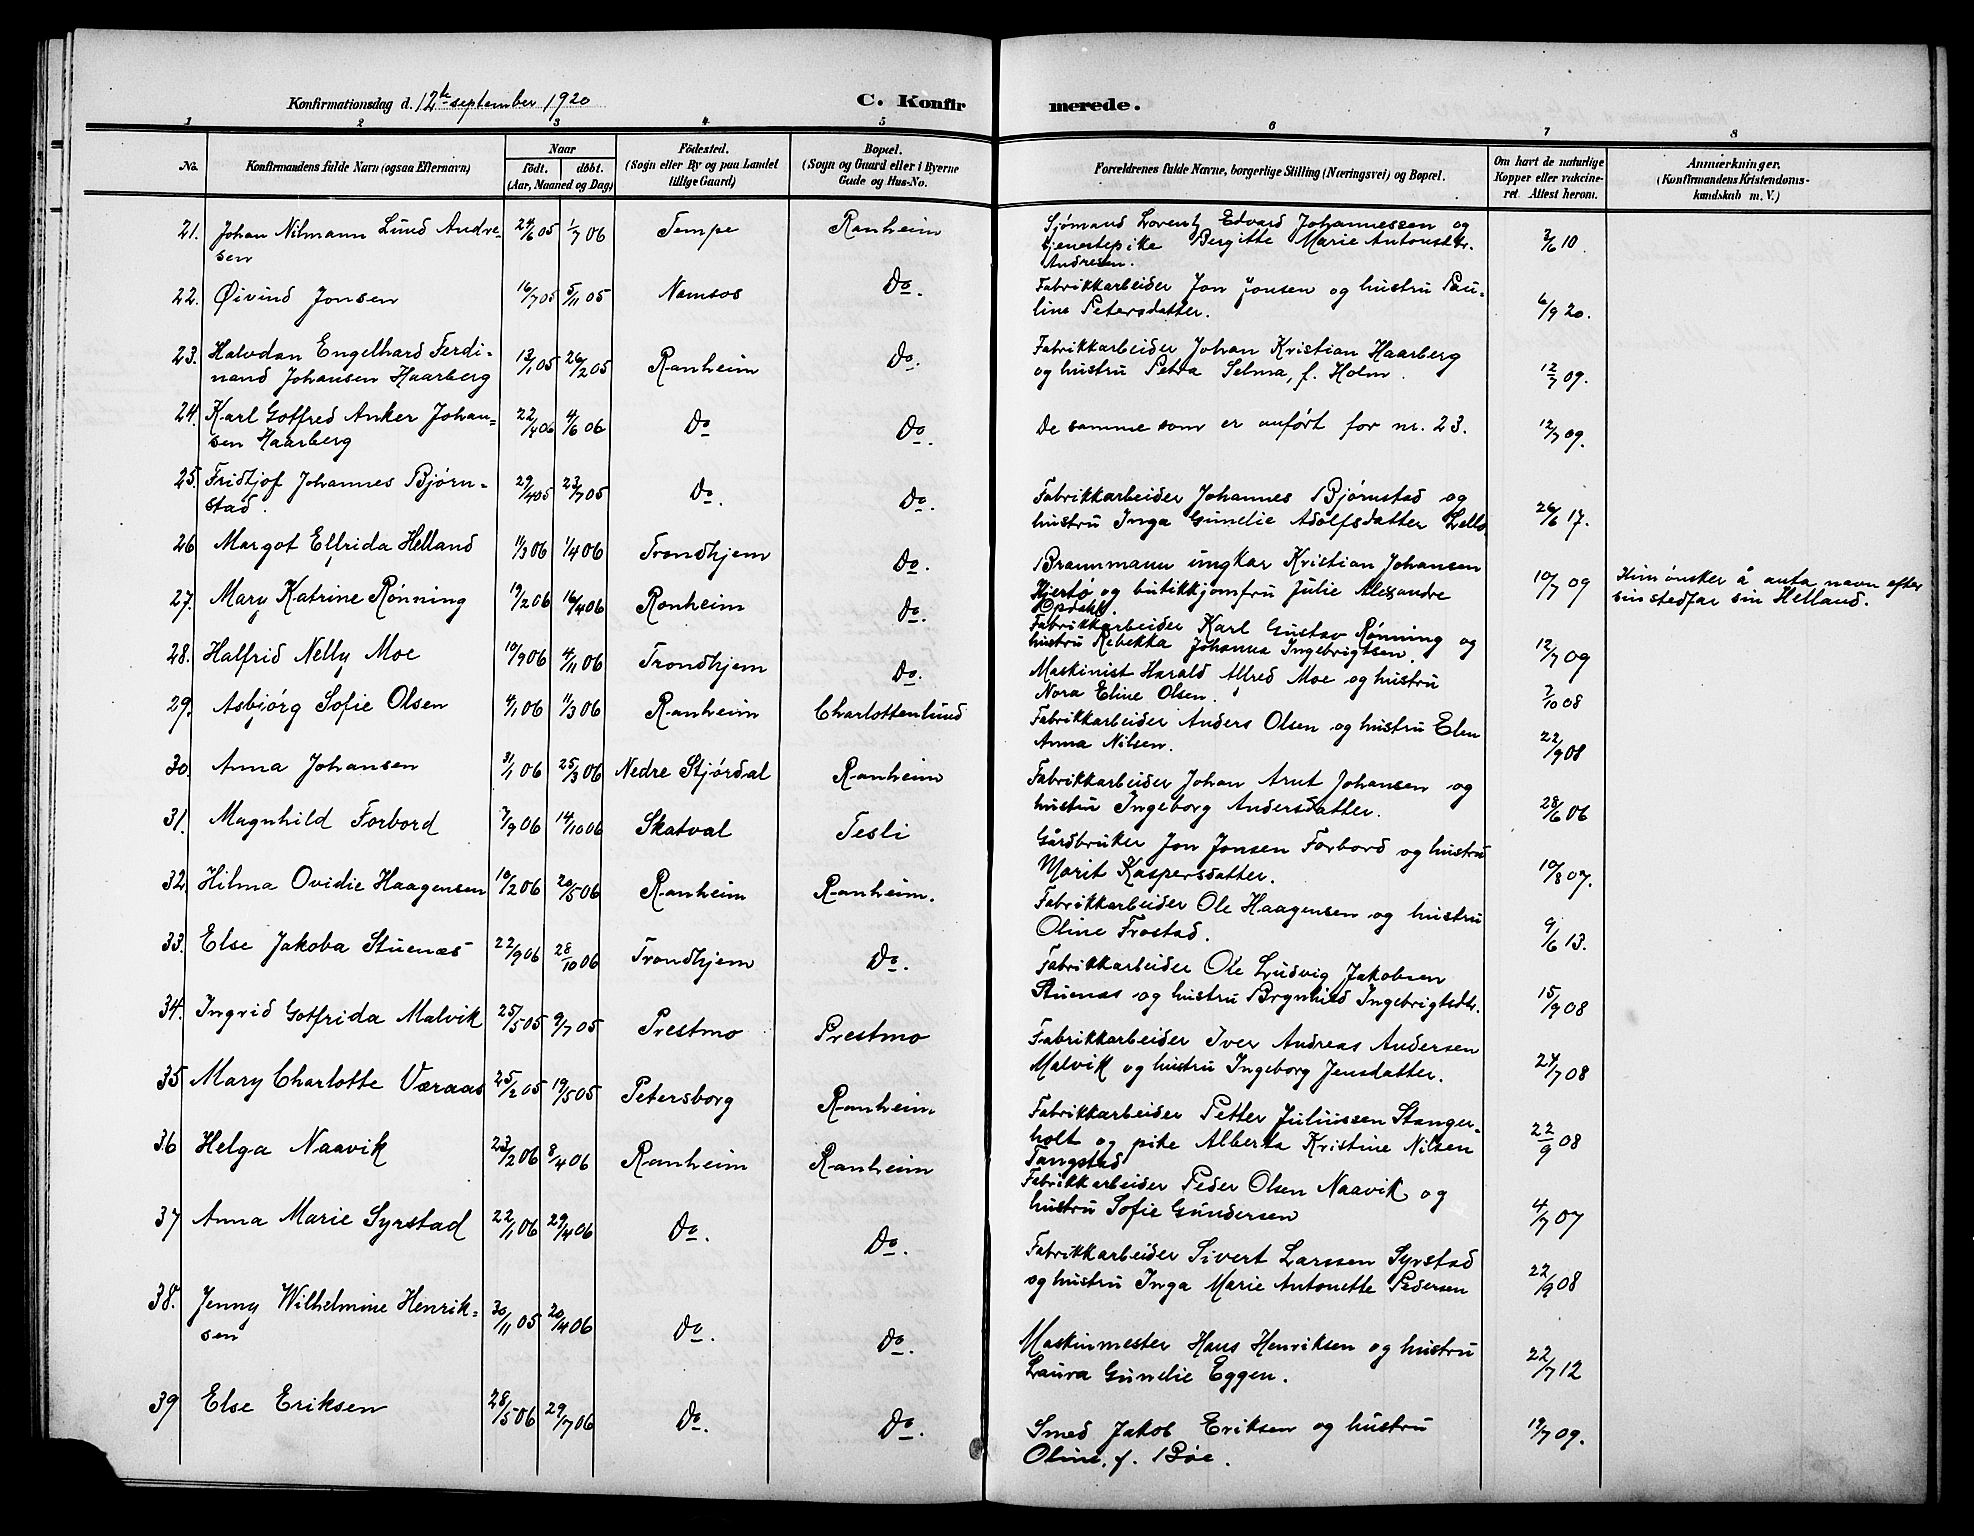 Konfirmationsdag d. 12te september 1920
C. Konfirmerede.
1 2 3 4 5 6 7 8
No. Konfirmandens fulde Navn (ogsaa Efternavn) Naar født. døbt. (Aar, Maaned og Dag) Fødested. (Sogn eller By og paa Landet tillige Gaard) Bopæl. (Sogn og Gaard eller i Byerne Gade og Hus-No. Forældrenes fulde Navne, borgerlige Stilling (Næringsvei) og Bopæl. Om havt de naturlige Kopper eller vakcineret. Attest herom. Anmærkninger. (Konfirmandens Kristendomskundskab m. V.)
21. Johan Nilmann Lund Andre- 24/6 05 1/7 06 Tempe Ranheim Sjømand Lorentz Edvard Johannessen og 3/6 10
sen tjenestepike Bergitte Marie Antonsdtr.
Andresen.
22. Øivind Jonsen 16/7 05 5/11 05 Namsos Do. Fabrikkarbeider Jon Jonsen og hustru Pau- 6/9 20.
line Petersdatter.
23. Halvdan Engelhard Ferdi- 13/1 05 26/2 05 Ranheim Do. Fabrikkarbeider Johan Kristian Haarberg 12/7 09.
nand Johansen Haarberg og hustru Petra Selma, f. Holm.
24. Karl Gotfred Anker Johan- 22/4 06 4/6 06 Do Do. De samme som er anført for nr. 23. 12/7 09.
sen Haarberg
25. Fridtjof Johannes Bjørn- 29/4 05 23/7 05 Do. Do. Fabrikkarbeider Johannes Bjørnstad og 26/6 17.
stad. hustru Inga Gunelie Adolfsdatter
26 Margot Elfrida Helland 11/3 06 1/4 06 Trondhjem Do. Brannmann ungkar Kristian Johansen 10/7 09 Hun ønsker å anta navn efter
Hjertø og butikkjomfru Julie Alexandre sin stedfar sin Helland.
Opdahl.
27. Mary Katrine Rønning 19/2 06 16/4 06 Ranheim Do. Fabrikkarbeider Karl Gustav Rønning og 12/7 09
hustru Rebekka Johanna Ingebrigtsen.
28. Halfrid Nelly Moe 10/9 06 4/11 06 Trondhjem Do. Maskinist Harald Alfred Moe og hustru 7/10 08
Nora Eline Olsen.
29. Asbjørg Sofie Olsen 4/1 06 11/3 06 Ranheim Charlottenlund Fabrikkarbeider Anders Olsen og hustru Elen 22/9 08
Anna Nilsen.
30. Anna Johansen 31/1 06 25/3 06 Nedre Stjørdal Ranheim Fabrikkarbeider Johan Arnt Johansen og 28/6 06
hustru Ingeborg Andersdatter.
31. Magnhild Forbord 7/9 06 14/10 06 Skatval Tesli Gårdbruker Jon Jonsen Forbord og hustru 10/8 07.
Marit Kaspersdatter.
32. Hilma Ovidie Haagensen 10/2 06 20/5 06 Ranheim Ranheim. Fabrikkarbeider Ole Haagensen og hustru 9/6 13.
Oline Frostad.
33. Else Jakoba Stuenæs 22/9 06 28/10 06 Trondhjem Do. Fabrikkarbeider Ole Ludvig Jakobsen 15/9 08
Stuenæs og hustru Brynhild Ingebrigtsdtr.
34. Ingrid Gotfrida Malvik 25/5 05 9/7 05 Prestmo Prestmo Fabrikkarbeider Iver Andreas Andersen 27/7 08
Malvik og hustru Ingeborg Jensdatter.
35 Mary Charlotte Væraas 25/2 05 19/5 05 Petersborg Ranheim Fabrikkarbeider Petter Juliussen Stanger- 22/9 08
holt og pike Alberta Kristine Nilsen
Tangstad
36 Helga Naavik 23/2 06 8/4 06 Ranheim Ranheim Fabrikkarbeider Peder Olsen Naavik og 4/7 07
hustru Sofie Gundersen
37 Anna Marie Syrstad 22/1 06 29/4 06 Do. Do. Fabrikkarbeider Sivert Larssen Syrstad 22/9 08
og hustru Inga Marie Antonette Pedersen
38. Jenny Wilhelmine Henrik- 30/11 05 20/4 06 Do. Do. Maskinmester Hans Henriksen og hustru 22/7 12
sen Laura Gunelie Eggen.
39 Else Eriksen 28/5 06 29/7 06 Do. Do. Smed Jakob Eriksen og hustru 19/7 09.
Oline, f. Bøe.